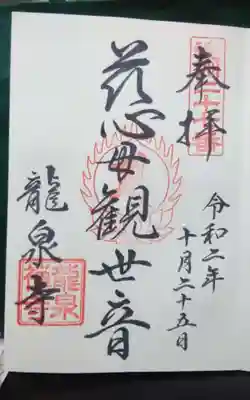 奉拝
令和二年
十月二十五日
慈母観世音
龍泉寺
龍泉